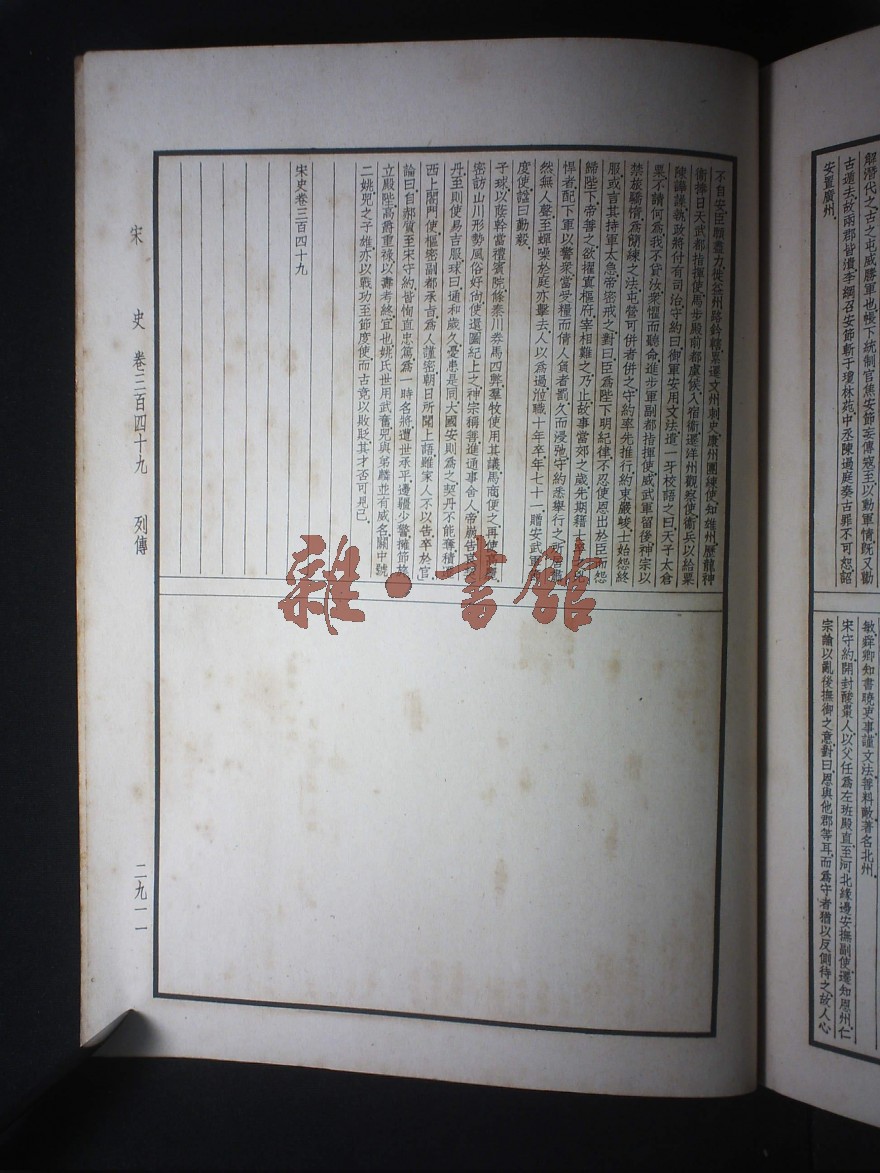 解潛代之古之屯威勝軍也帳下統制官焦安節妄傳寇至以動軍情旣又勸
古遁去故兩郡皆潰李綱召安節斬于瓊林苑中丞陳過庭奏古罪不可恕詔
安置廣州
敏鮮卿知書曉吏事謹文法善料敵著名北州
宋守約開封酸棗人以父任爲左班殿直至河北緣邊安撫副使遷知恩州仁
宗諭以亂後撫御之意對曰恩與他郡等耳而爲守者猶以反側待之故人心
不自安臣願盡力徙益州路鈐轄累遷文州刺史康州團練使知雄州歷龍神
衞捧日天武都指揮使馬步殿前都虞候入宿衞遷洋州觀察使衞兵以給粟
陳譁謹執政將付有司治守約曰御軍安用文法遣一牙校語之曰天子太倉
粟不請何爲我不貸汝衆懼而聽命進步軍副都指揮使威武軍留後神宗以
禁旅驕惰爲簡練之法屯營可併者併之守約率先推行約束嚴峻士始怨終
服或言其持軍太急帝密戒之對曰臣爲陛下明紀律不忍使恩出於臣而怨
歸陛下帝善之欲擢寘樞府宰相難之乃止故事當郊之歲先期籍
悍者配下軍以警衆當受糧而倩人負者罰久而浸弛守約悉舉行之
然無人聲至蟬噪於庭亦擊去人以爲過涖職十年卒年七十一贈安武軍
度使諡曰勤毅
子球以蔭幹當禮賓院條秦川券馬四弊羣牧使用其議馬商便之再使
密訪山川形勢風俗好尙使還圖紀上之神宗稱善進通事舍人帝崩告
丹至則使易吉服球曰通和歲久憂患是同大國安則爲之契丹不能奪積
西上閤門使樞密副都承旨爲人謹密朝日所聞上語雖家人不以告卒於官
論曰自郝質至宋守約皆恂直忠篤爲一時名將遭世承平邊疆少警擁節
立殿陛高爵重祿以壽考終宜也姚氏世用武奮兕與弟麟並有威名關中號
二姚兕之子雄亦以戰功至節度使而古竟以敗貶其才否可見已
宋史卷三百四十九
宋 史 卷三百四十九 列傳
二九一一
雜·書館